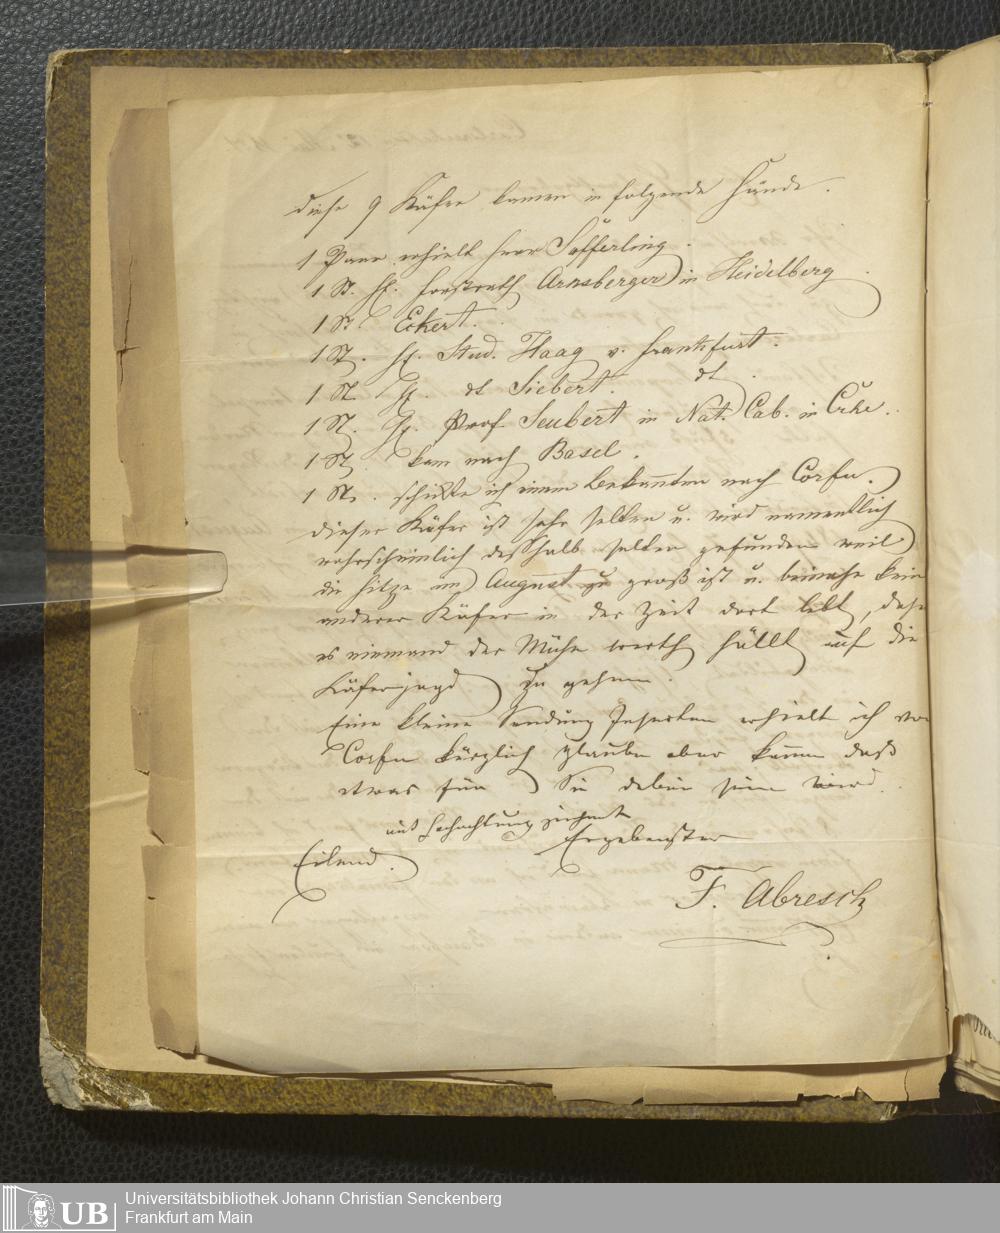 diese 9 Käfer kamen in folgende Hände.
1 Paar erhielt Herr Sefferling.
1 St. H. Forstrath Arnsberger in Heidelberg
1 St Eckert.
1 St. H. Stud. Haag v. Frankfurt.
1 St H. dt Siebert. dt.
1 St. H. Prof Seubert in Nat. Cab. in Crhe.
1 St kam nach Basel.
1 St. schickte ich einem Bekannten nach Corfu.
dieser Käfer ist sehr selten u. wird namentlich
wahrscheinlich deßhalb selten gefunden weil
die Hitze im August zu groß ist u. beinahe kein
anderer Käfer in der Zeit dort lebt, daß
es niemand der Mühe werth hällt auf die
Käferjagd zu gehen.
Eine kleine Sendung Insecten erhielt ich von
Corfu kürzlich glaube aber kaum daß
etwas für Sie dabei sein wird.
mit Hochachtung zeichnet
Ergebenster
Eilend.
F. Abresch
UB Universitätsbibliothek Johann Christian Senckenberg
Frankfurt am Main